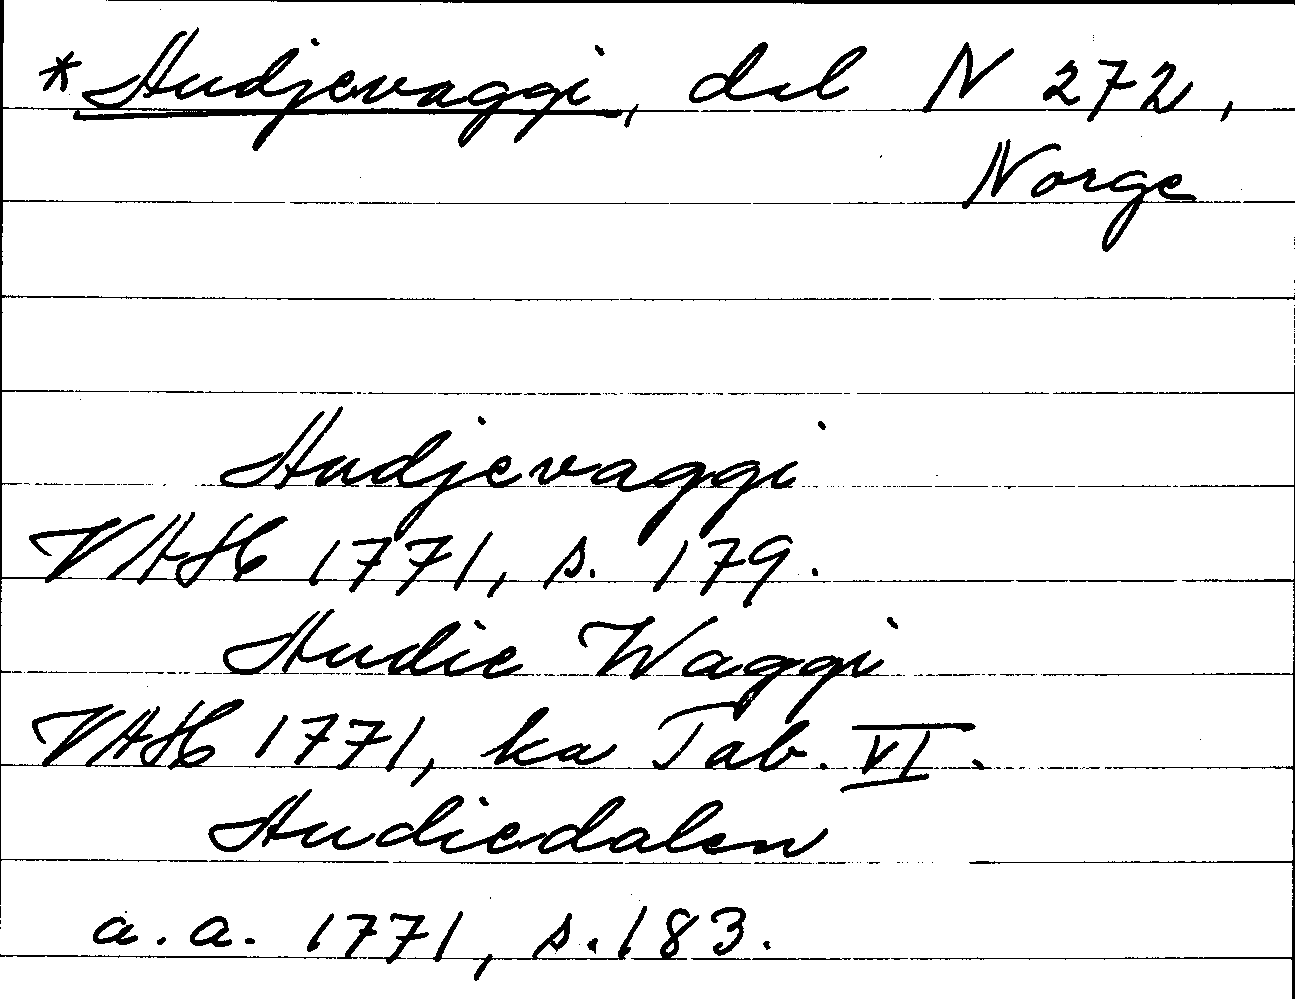 *Audjevaggi, dal N 272,
Norge
Audjevaggi
VAH 1771, s. 179.
Audie Waggi
VAH 1771, ka Tab. VI.
Audiedalen
a.a. 1771, s. 183.